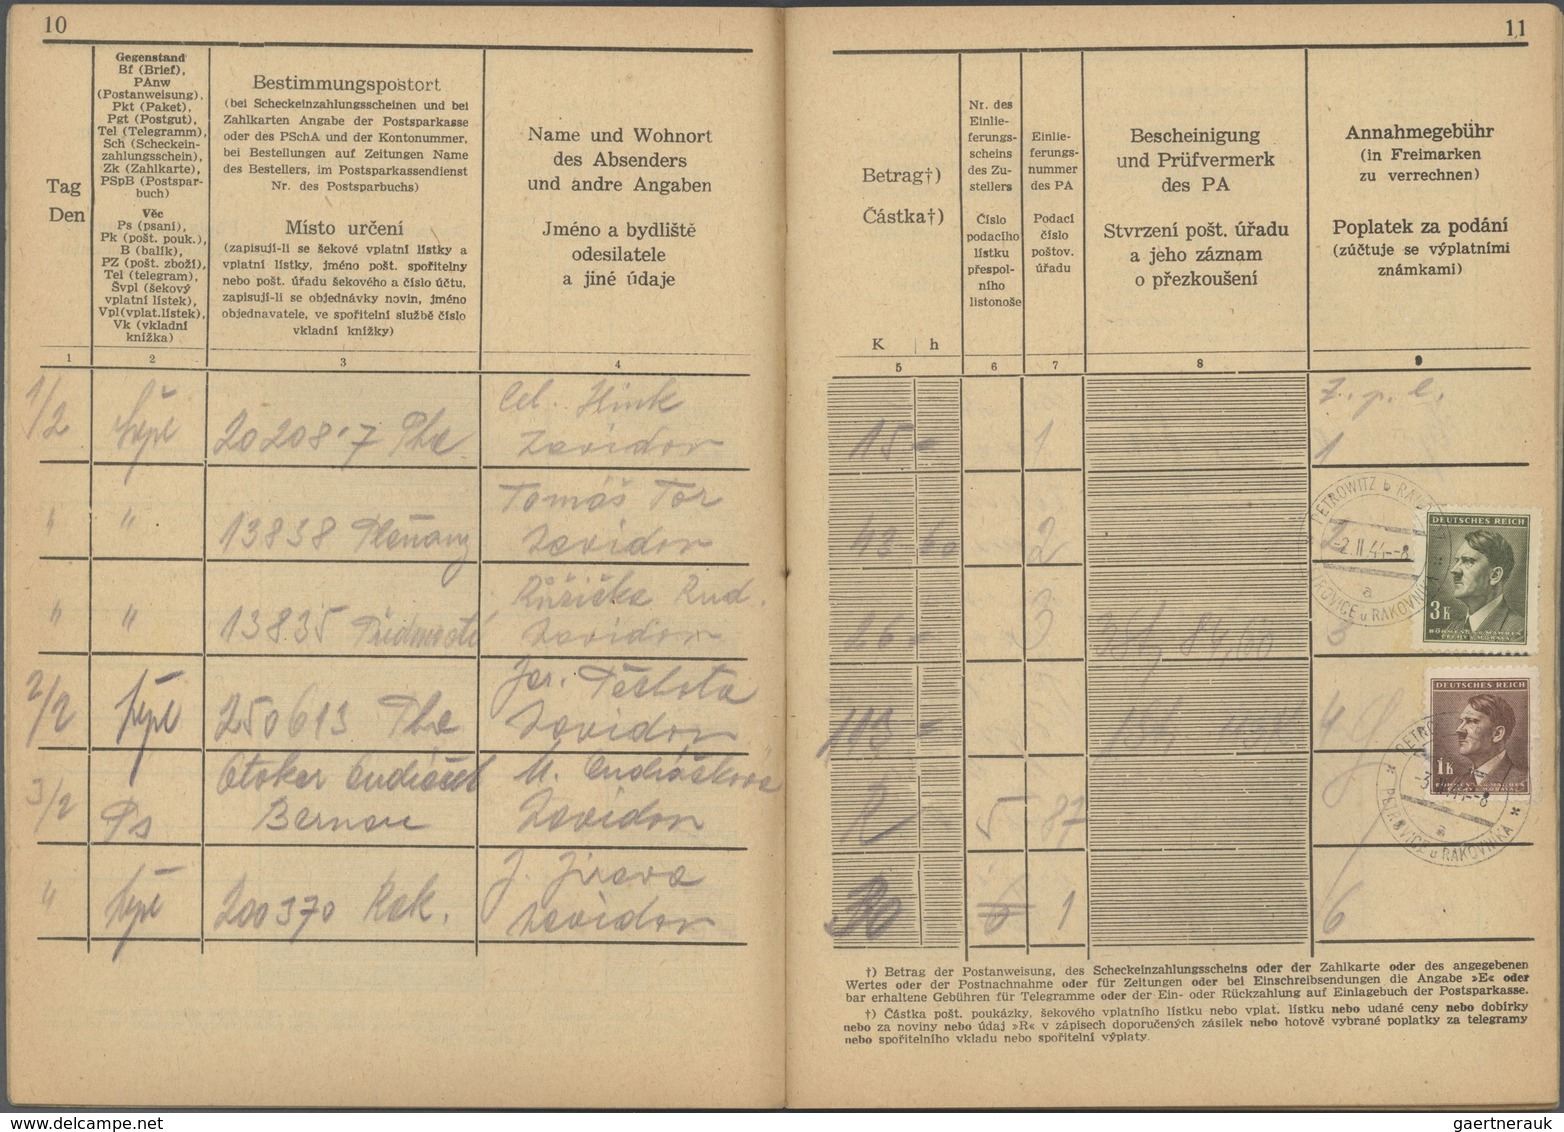 10
Tag
Den
Gegenstand
Bf (Brief),
PAnw
(Postanweisung),
Pkt (Paket),
Pgt (Postgut),
Tel (Telegramm),
Sch (Scheckein-
zahlungsschein),
Zk (Zahlkarte),
PSpB (Postspar-
buch)
Věc
Ps (psaní),
Pk (pošt. pouk.),
B (balík),
PZ (pošt. zboží),
Tel (telegram),
Švpl (šekový
vplatní lístek),
Vpl(vplat.lístek),
Vk (vkladní
knížka)
Bestimmungspostort
(bei Scheckeinzahlungsscheinen und bei
Zahlkarten Angabe der Postsparkasse
oder des PSchA und der Kontonummer,
bei Bestellungen auf Zeitungen Name
des Bestellers, im Postsparkassendienst
Nr. des Postsparbuchs)
Místo určení
(zapisují-li se šekové vplatní lístky a
vplatní lístky, jméno pošt. spořitelny
nebo pošt. úřadu šekového a číslo účtu,
zapisují-li se objednávky novin, jméno
objednavatele, ve spořitelní službě číslo
vkladní knížky)
Name und Wohnort
des Absenders
und andre Angaben
Jméno a bydliště
odesílatele
a jiné údaje
1 2 3 4
1/2
202087 Pha
Zavidov
" "
13838
Tomáš Tor
Zavidov
" "
13835 Předmostí
Růžička Rud.
Zavidov
2/2
250613 Pha
Jar. Těchota
Zavidov
3/2
Ps
Otokar
Bernau
M.
Zavidov
"
200370 Rak.
J. Jirava
Zavidov
11
Betrag†)
Částka†)
K h
Nr. des
Einlie-
ferungs-
scheins
des Zu-
stellers
Číslo
podacího
lístku
přespol-
ního
listonoše
Einlie-
ferungs-
nummer
des PA
Podací
číslo
poštov.
úřadu
Bescheinigung
und Prüfvermerk
des PA
Stvrzení pošt. úřadu
a jeho záznam
o přezkoušení
Annahmegebühr
(in Freimarken
zu verrechnen)
Poplatek za podání
(zúčtuje se výplatními
známkami)
5 6 7 8 9
15 - 1
1
43 60 2
2
26 - 3
84,60
3
113 -
4
5 87
30 6 1
6
PETROWITZ b RAKO
-2.II.44--8
a
PETROVICE u RAKOVNÍKA
DEUTSCHES REICH
3 K
BÖHMEN und MÄHREN
ČECHY a MORAVA
DEUTSCHES REICH
1 K
BÖHMEN und MÄHREN
ČECHY a MORAVA
-3.II.44--8
a
PETROVICE u RAKOVNÍKA
†) Betrag der Postanweisung, des Scheckeinzahlungsscheins oder der Zahlkarte oder des angegebenen
Wertes oder der Postnachnahme oder für Zeitungen oder bei Einschreibsendungen die Angabe »E« oder
bar erhaltene Gebühren für Telegramme oder der Ein- oder Rückzahlung auf Einlagebuch der Postsparkasse.
†) Částka pošt. poukázky, šekového vplatního lístku nebo vplat. lístku nebo udané ceny nebo dobírky
nebo za noviny nebo údaj »R« v zápisech doporučených zásilek nebo hotově vybrané poplatky za telegramy
nebo spořitelního vkladu nebo spořitelní výplaty.
gaertnerauk